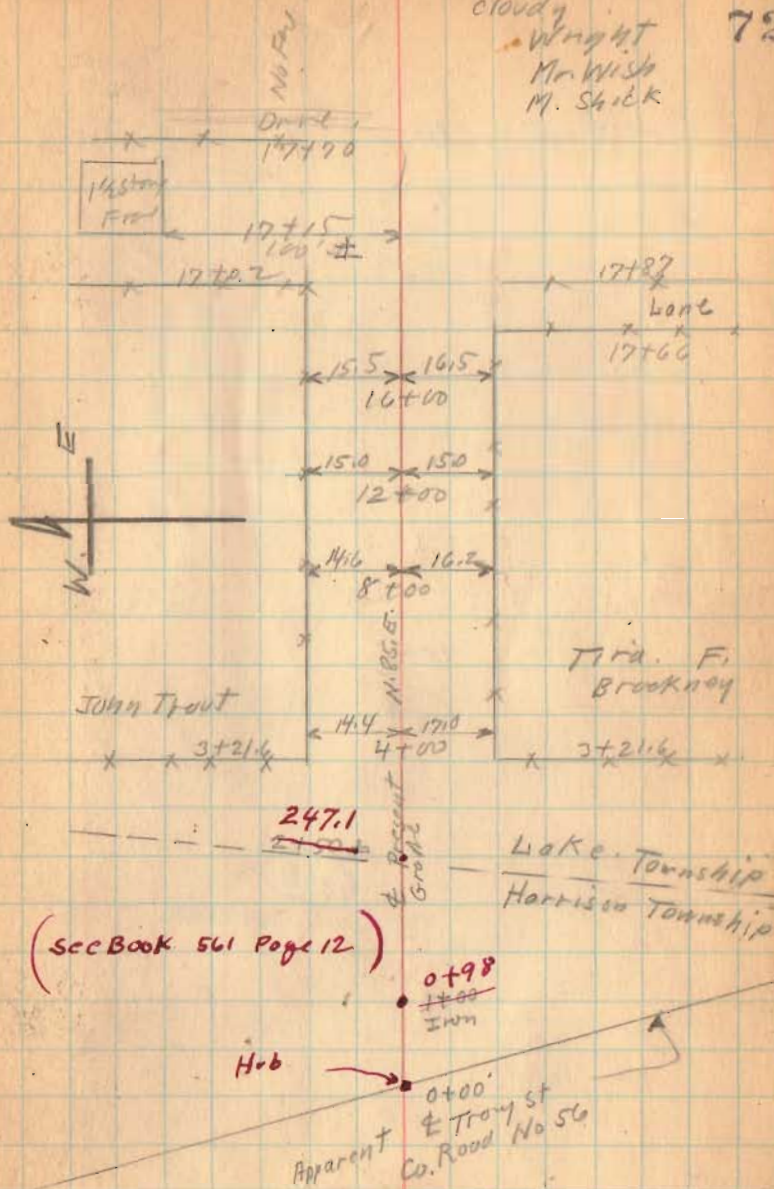 cloudy
Wright
Mr. Wish
M. Shick
72
No Fen
Drive
17+70
1½ Story
17+15
100' ±
17+0.2
17+87
Lane
17+66
15.5 16.5
16+00
15.0 15.0
12+00
14.6 16.2
8+00
E
W.
N.85.E.
John Trout
F.
Brookney
14.4 17.0
4+00
3+21.6
3+21.6
247.1
℄ Present
Grade
Lake Township
Harrison Township
(see Book 561 Page 12)
0+98
1+00
Iron
Hub
0+00
Apparent ℄ Troy St
Co. Road No 56